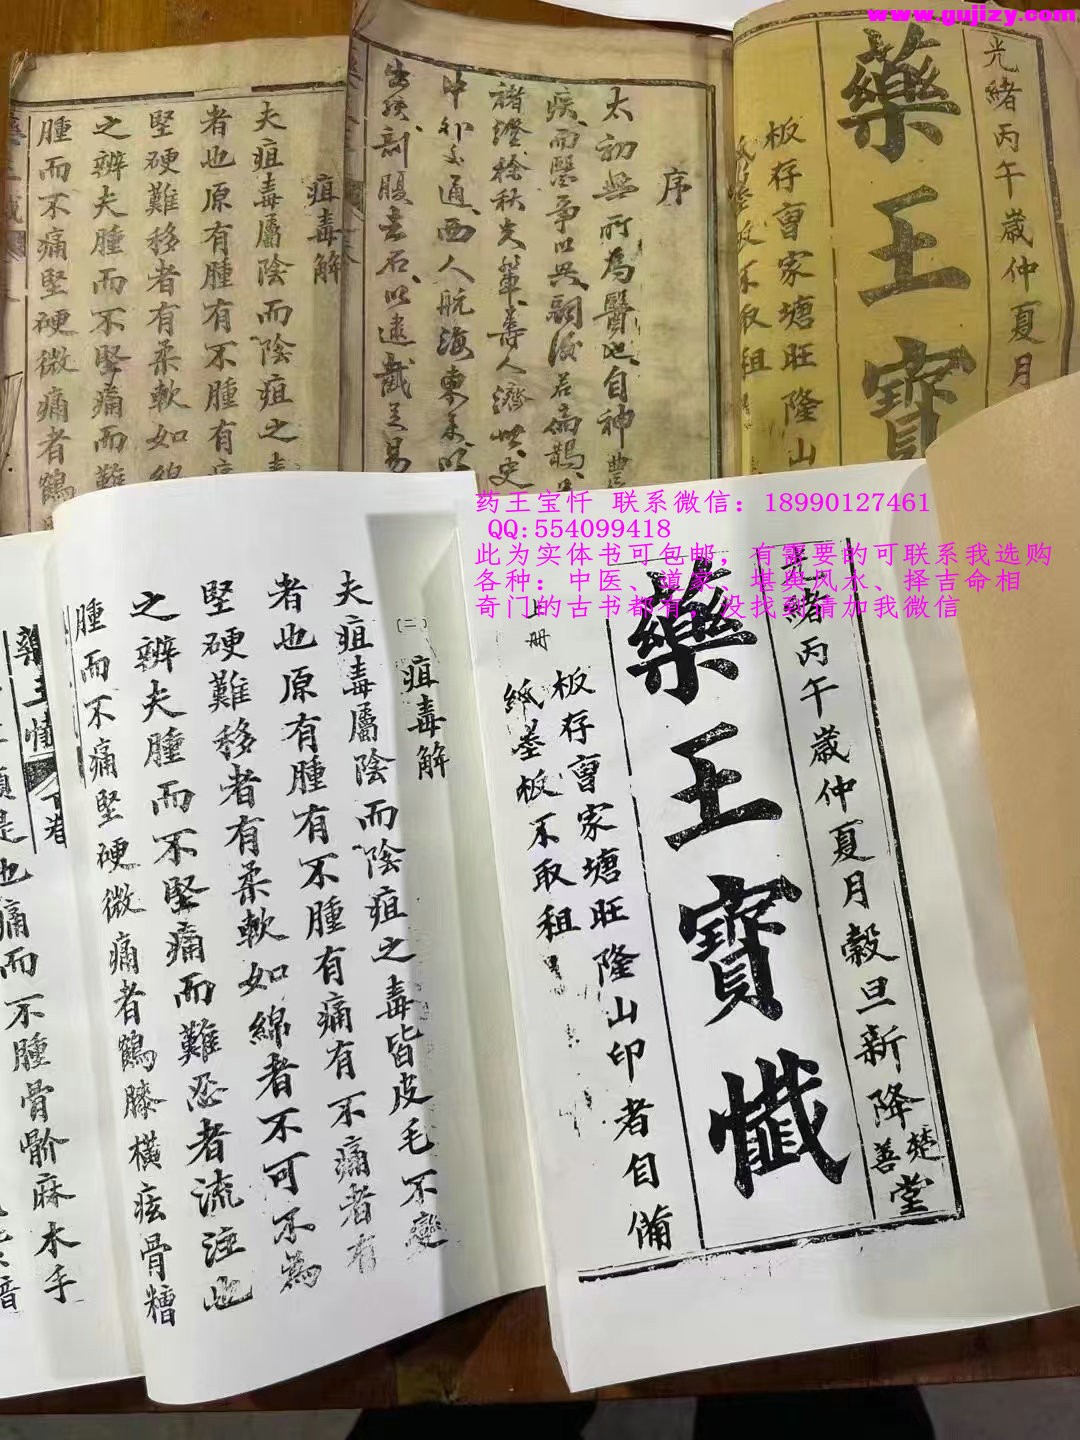 www.gujizy.com
光緒丙午歲仲夏月
藥王寶
板存曺家塘旺隆山
紙墨板不取租
序
太初無所為醫也自神農
疾而醫爭以興嗣後若扁鵲
褚澄徐秋夫輩壽人濟世史
中外交通西人航海東來以
剖腹去石以逮截
疽毒解
夫疽毒屬陰而陰疽之毒
者也原有腫有不腫有痛
堅硬難移者有柔軟如綿
之辨夫腫而不堅痛而難
腫而不痛堅硬微痛者鶴
药王宝忏 联系微信：18990127461
QQ:554099418
此为实体书可包邮，有需要的可联系我选购
各种：中医、道家、堪舆风水、择吉命相
奇门的古书都有，没找到请加我微信
光緒丙午歲仲夏月穀旦新降
楚善堂
藥王寶懺
上册
板存曺家塘旺隆山印者自備
紙墨板不取租
(二)
疽毒解
夫疽毒屬陰而陰疽之毒皆皮毛不變
者也原有腫有不腫有痛有不痛者有
堅硬難移者有柔軟如綿者不可不為
之辨夫腫而不堅痛而難忍者流注也
腫而不痛堅硬微痛者鶴膝橫痃骨糟
藥王懺
下卷
是也痛而不腫骨骱麻木手